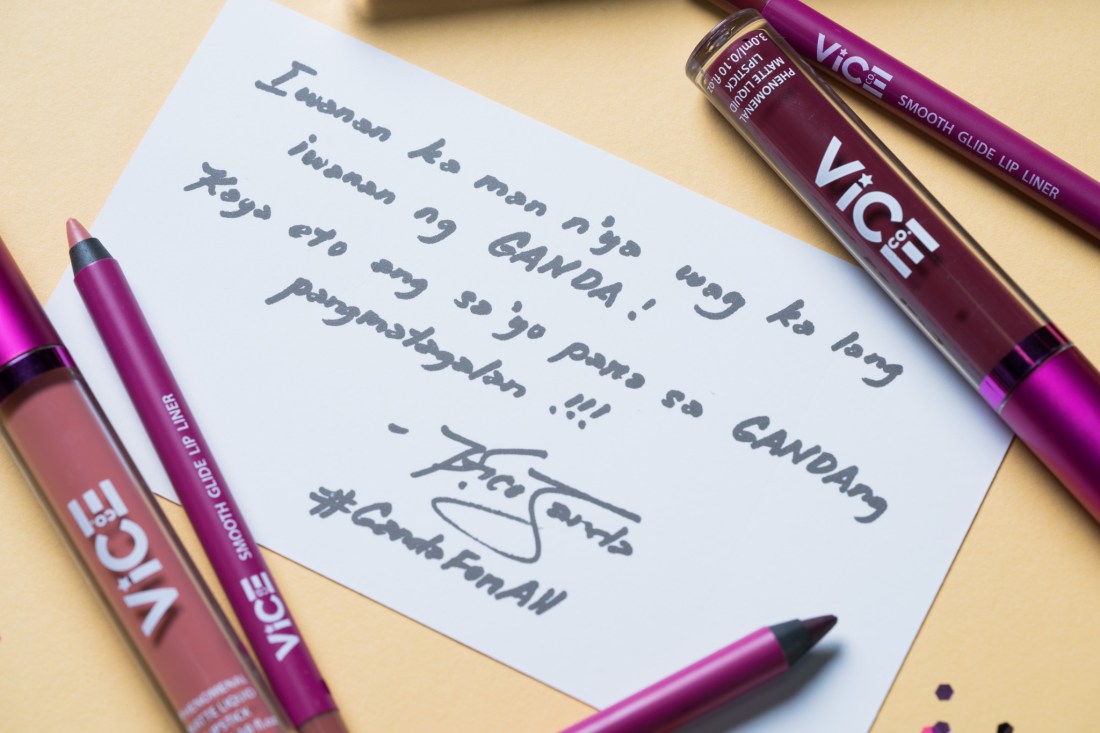 Iwanan ka man n'ya wag ka lang
iwanan ng GANDA!
Kaya eto ang sa 'yo para sa GANDAng
pangmatagalan !!!
- Vice Ganda
#GandaForAll
VICE CO.
SMOOTH GLIDE LIP LINER
3.0ml/0.10 fl.oz
PHENOMENAL
MATTE LIQUID
LIPSTICK
VICE CO.
SMOOTH GLIDE LIP LINER
VICE CO.
VICE CO.
PHENOMENAL
MATTE LIQUID
LIPSTICK